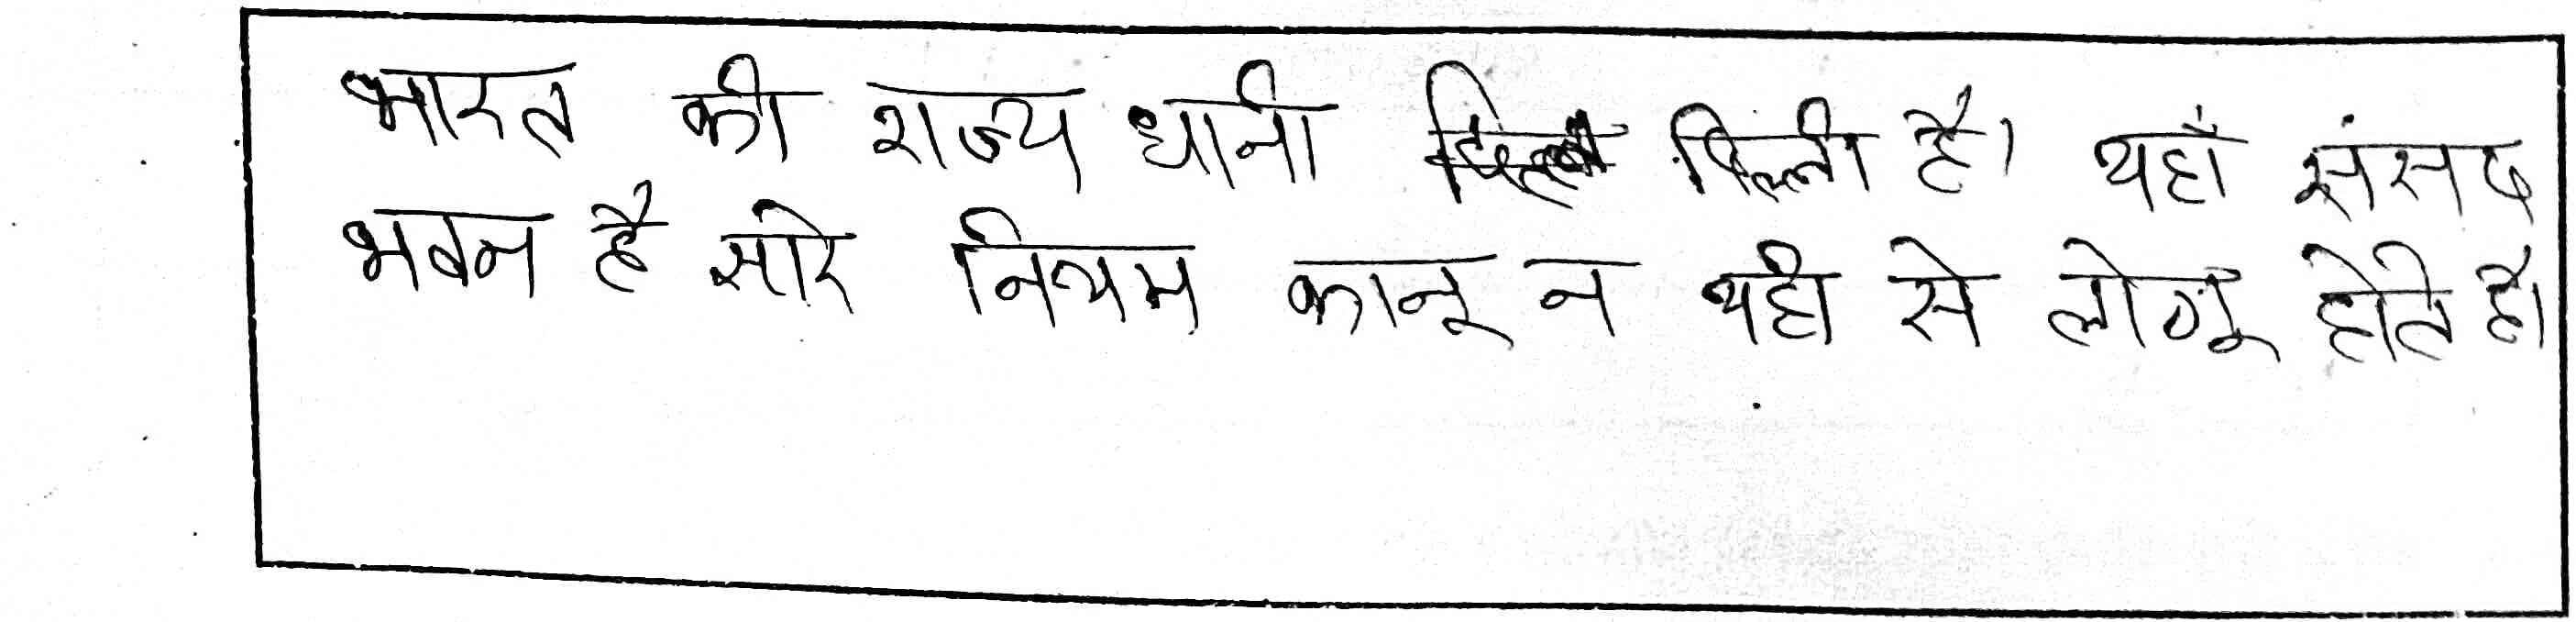 भारत की राज्य धानी दिल्ली है। यहाँ संसद
भवन है सारे नियम कानून यही से लागू होते है।